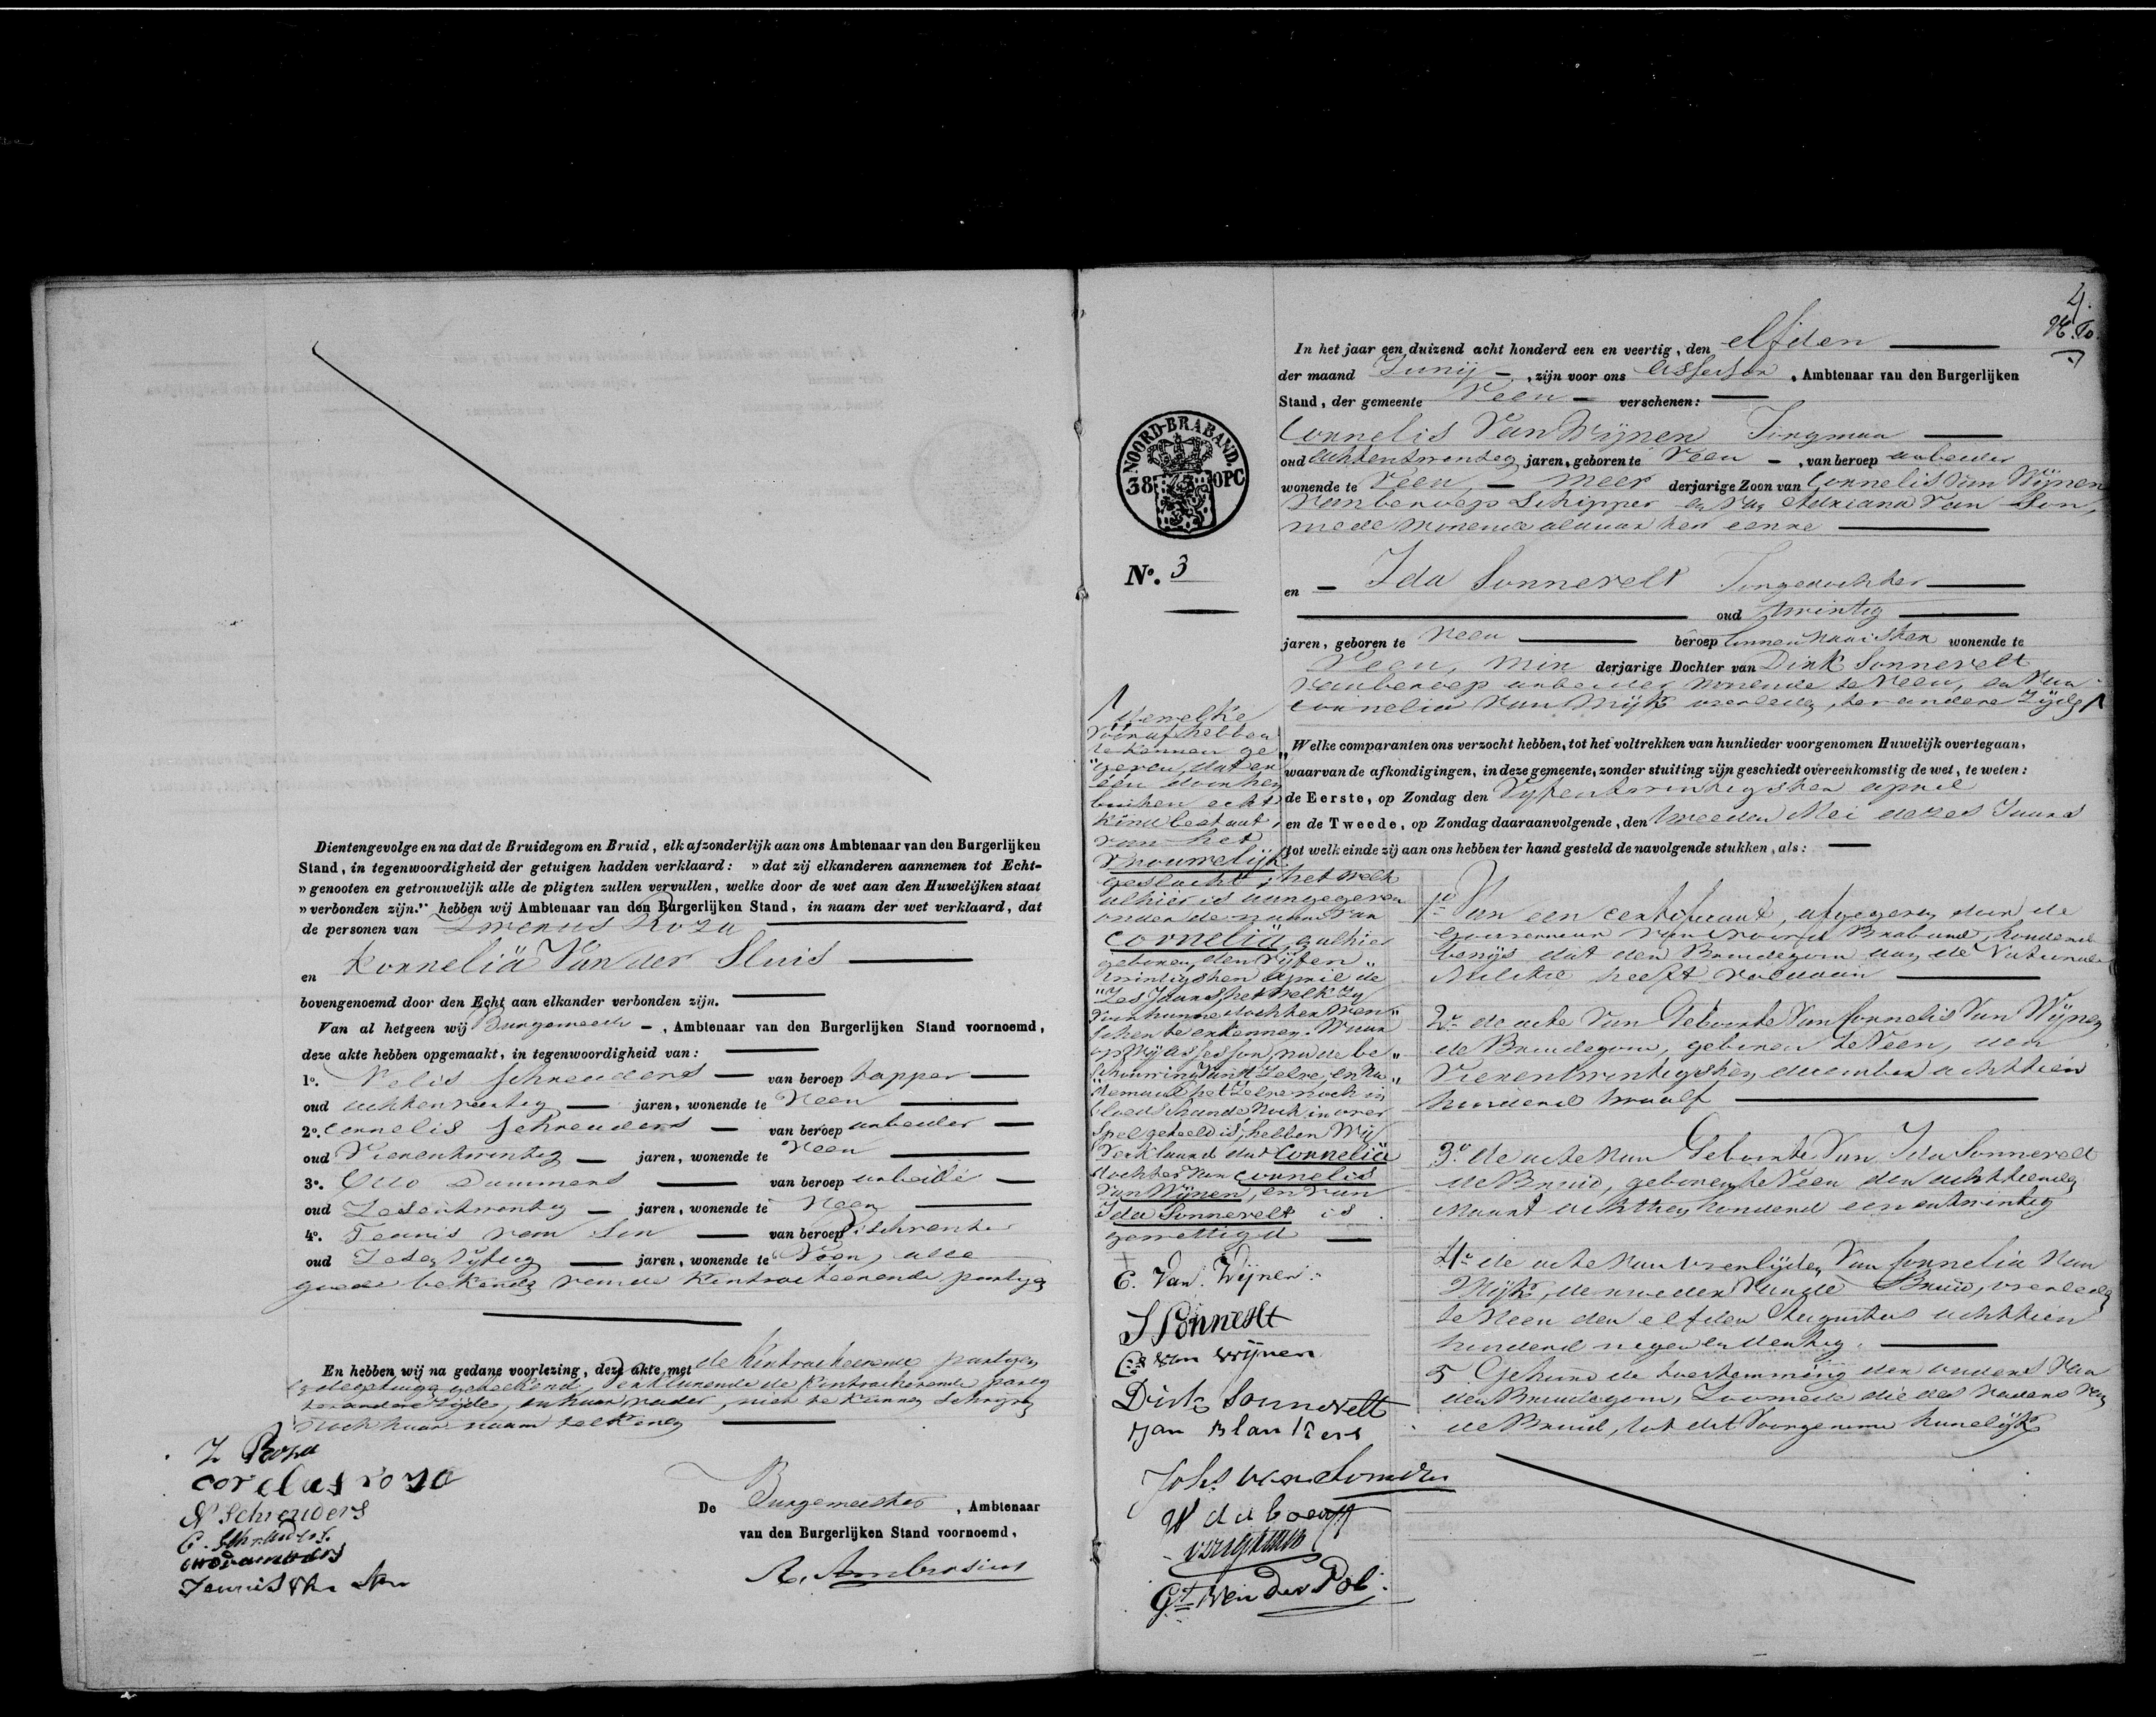 Dientengevolge en na dat de Bruidegom en Bruid, elk afzonderlijk aan ons Ambtenaar van den Burgerlijken
Stand, in tegenwoordigheid der getuigen hadden verklaard: »dat zij elkanderen aannemen tot Echt-
»genooten en getrouwelijk alle de pligten zullen vervullen, welke door de wet aan den Huwelijken staat
»verbonden zijn.” hebben wij Ambtenaar van den Burgerlijken Stand, in naam der wet verklaard, dat
de personen van Roza
en Kornelia Van der Sluis
bovengenoemd door den Echt aan elkander verbonden zijn.
Van al hetgeen wij Burgemeester, Ambtenaar van den Burgerlijken Stand voornoemd,
deze akte hebben opgemaakt, in tegenwoordigheid van:
1º. Nelis Schreuders van beroep tapper
oud jaren, wonende te Veen
2º. Cornelis Schreuders van beroep arbeider
oud Vierentwintig jaren, wonende te Veen
3º. Otto Dammers van beroep
oud Zesentwintig jaren, wonende te Veen
4º. Teunis van Son van beroep
oud Zesen Vyftig jaren, wonende te Veen, alle
goede bekende van de Kontracteerende partyen
En hebben wij na gedane voorlezing, deze akte, met de Kontracteerende partyen
en de getuige geteekend, verklarende de Kontracteerende party
ter andere zijde, en haar vader, niet te kunnen schryven
noch haar naam teekenen
Z Roza
N Schreuders
Teunis van Son
De Burgemeester, Ambtenaar
van den Burgerlijken Stand voornoemd,
A. Ambrosius
4.
In het jaar een duizend acht honderd een en veertig, den elfden
der maand Junij, zijn voor ons Assessor, Ambtenaar van den Burgerlijken
Stand, der gemeente Veen verschenen:
Cornelis Van Wijnen Jongman
oud achtentwintig jaren, geboren te Veen, van beroep arbeider
wonende te Veen, meer derjarige Zoon van Cornelis Van Wijnen
van beroep Schipper en van Adriana van Son,
mede wonende aldaar ter eenre
NOORD-BRABAND.
38 OPC
No. 3
en Ida Sonnevelt Jongedochter
oud twintig
jaren, geboren te Veen beroep linnen naaister wonende te
Veen, min derjarige Dochter van Dirk Sonnevelt
van beroep arbeider wonende te Veen, en van
Cornelia van Wijk overleden, ter andere Zijde
Welke comparanten ons verzocht hebben, tot het voltrekken van hunlieder voorgenomen Huwelijk overtegaan,
waarvan de afkondigingen, in deze gemeente, zonder stuiting zijn geschiedt overeenkomstig de wet, te weten:
de Eerste, op Zondag den Vyfentwintigsten april
en de Tweede, op Zondag daaraanvolgende, den tweeden Mei dezes Jaars
tot welk einde zij aan ons hebben ter hand gesteld de navolgende stukken, als:
1º Van een certificaat, afgegeven door de
Gouverneur van Noord Braband, houdende
bewijs dat den Bruidegom aan de Nationale
Militie heeft voldaan
2º de acte van Geboorte van Cornelis Van Wijnen
de Bruidegom, geboren te Veen, den
Vierentwintigsten december achttien
honderd twaalf
3º de acte van Geboorte Van Ida Sonnevelt
de Bruid, geboren te Veen den achttienden
Maart achttien honderd een en twintig
4º de acte van overlijden Van Cornelia van
Wijk, de moeder van de Bruid, overleden
te Veen den elfden Augustus achttien
honderd negen en dertig.
5 Gehoord de toestemming der ouders van
den Bruidegom, Zoomede die des vaders van
de Bruid, tot dit voorgenomen huwelijk
dewelke
vooraf hebben
te kennen ge
"geven, dat er
één door hen
buiten echt
kind bestaat,
van het
Vrouwelijk
geslacht, het welk
alhier is aangegeven
onder de naam van
Cornelia, alhier
geboren den vijfen
twintigsten April de
"zes Jaars, het welk zy
voor hunne dochter Wen"
schen te erkennen. Waar
op Wij Assessor, na de be"
demaal het zelve noch in
bloedschande noch in over
spel geteeld is, hebben Wij
Verklaard dat Cornelia
dochter van Cornelis
Van Wijnen, en van
Ida Sonnevelt is
gewettigd
C. Van Wijnen
I Sonnevelt
Cs van Wijnen
Dirk Sonnevelt
Jan Blankers
Gt van der Pol